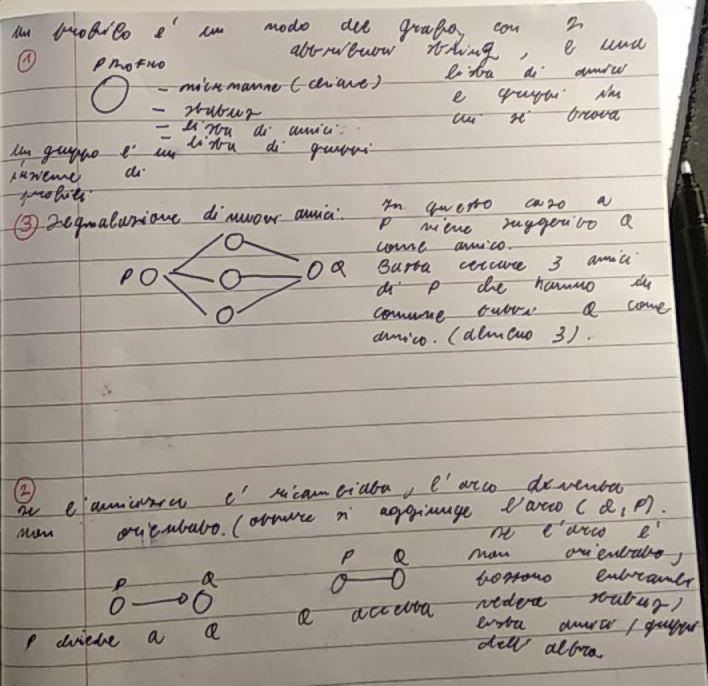 un profilo e' un nodo del grafo, con 2
attributi string, e una
lista di amici
e gruppi in
cui si trova
①
PROFILO
- nickname (chiave)
- status
- lista di amici
- lista di gruppi
un gruppo e' un
insieme di
profili
③ Segnalazione di nuovi amici.
P
Q
In questo caso a
P viene suggerito Q
come amico.
Basta cercare 3 amici
di P che hanno in
comune tutti Q come
amico. (almeno 3).
②
se l'amicizia e' ricambiata, l'arco diventa
non orientato. (oppure si aggiunge l'arco (Q, P).
P Q
P chiede a Q
P Q
Q accetta
se l'arco e'
non orientato,
possono entrambi
vedere status,
lista amici / gruppi
dell'altro.